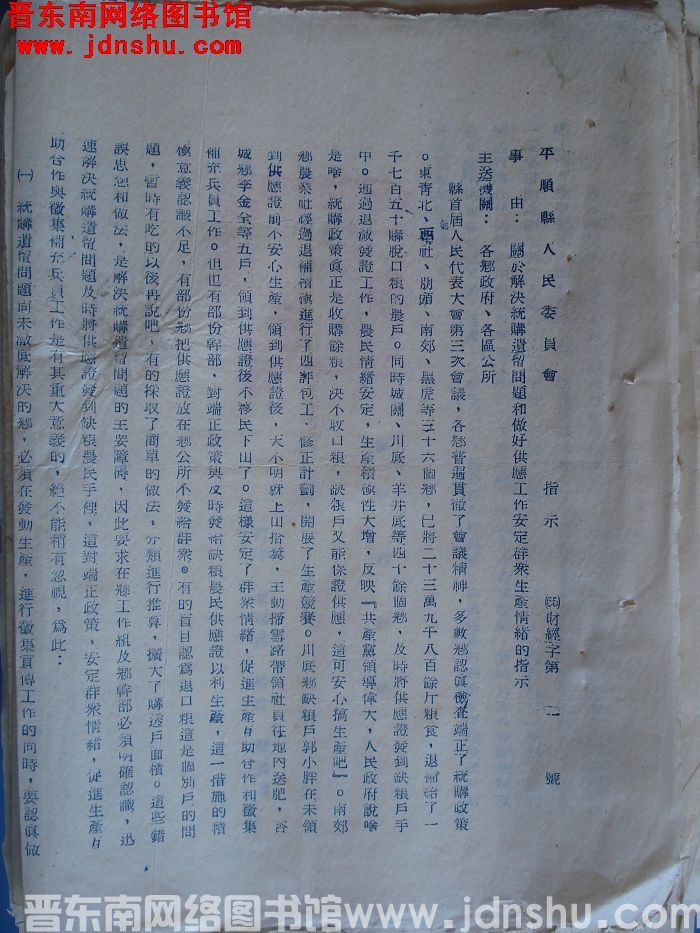 晋东南网络图书馆
www.jdnshu.com
平順縣人民委員會 指示 財經字第 號
事由：關於解決統購遺留問題和做好供應工作安定群众生產情緒的指示
主送機關：各鄉政府、各區公所
縣首屆人民代表大會第三次會議，各鄉普遍貫徹了會議精神，多數鄉認眞檢查端正了統購政策
。東青北、西社、朋頭、南郊、黑虎等三十六個鄉，已將二十三萬九千八百餘斤粮食，退補給了一
千七百五十購脫口粮的農戶。同時城關、川底、羊井底等四十餘個鄉，及時將供應證發到缺粮戶手
中。通過退減發證工作，農民情緒安定，生產積極性大增，反映『共產黨領導偉大，人民政府說啥
是啥，統購政策真正是收購餘粮，决不收口粮，缺粮戶又能保證供應，這可安心搞生產吧』。南郊
鄉農業社經過退補積極進行了四評包工，修正計劃，開展了生產競賽。川底鄉缺粮戶郭小胖在未領
到供應證前不安心生產，領到供應證後，天不明就上山拾糞，主動掃雪路帶領社員往地內送肥，杏
城鄉李金全等五戶，領到供應證後不移民下山了。這樣安定了群衆情緒，促進生產互助合作和徵集
補充兵員工作。但也有部份幹部，對端正政策與及時發給缺粮農民供應證以利生產，這一措施的積
極意義認識不足，有部份鄉把供應證放在鄉公所不發給群衆。有的盲目認爲退口粮這是個別戶的問
題，暫時有吃的以後再說吧，有的採取了簡單的做法，分類進行推算，擴大了購透戶面積。這些錯
誤思想和做法，是解決統購遺留問題的主要障碍，因此要求在鄉工作組及鄉幹部必須明確認識，迅
速解決統購遺留問題及時將供應證發到缺粮農民手裡，這對端正政策，安定群衆情緒，促進生產互
助合作與徵集補充兵員工作是有其重大意義的，絕不能稍有忽視，爲此：
㈠統購遺留問題尚未徹底解決的鄉，必須在發動生產，進行徵集宣傳工作的同時，要認眞做
晋东南网络图书馆www.jdnshu.com